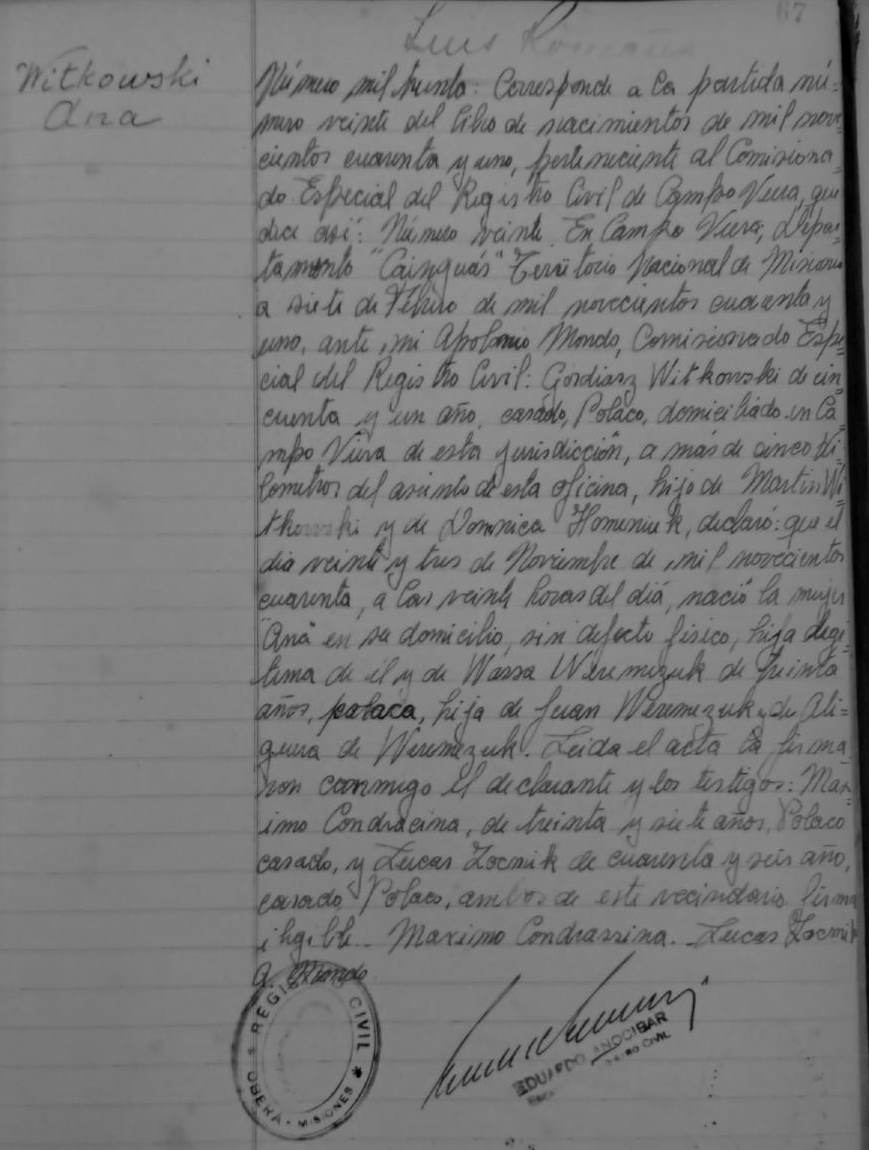 67
Luis
Witkowski
Ana
Número mil treinta: Corresponde a la partida nú=
mero veinte del libro de nacimientos de mil nove=
cientos cuarenta y uno, perteneciente al Comisiona=
do Especial del Registro Civil de Campo Viera, que
dice así: Número veinte. En Campo Viera, Depar=
tamento "Cainguás" Territorio Nacional de Misiones
a siete de Febrero de mil novecientos cuarenta y
uno, ante mi Apolonio Mondo, Comisionado Espe=
cial del Registro Civil: Gordiasz Witkowski de cin=
cuenta y un año, casado, Polaco, domiciliado en Ca=
mpo Viera de esta jurisdicción, a más de cinco ki=
lometros del asiento de esta oficina, hijo de Martin Wi=
tkowski y de Domnica Homeniuk, declaró: que el
dia veinte y tres de Noviembre de mil novecientos
cuarenta, a las veinte horas del diá, nació la mujer
"Ana" en su domicilio, sin defecto fisico, hija legi=
tima de él y de Wassa Weremczuk de treinta
años, polaca, hija de Juan Weremczuk y de
de Weremczuk. Leida el acta la firma=
ron conmigo el declarante y los testigos: Max=
imo Condracina, de treinta y siete años, Polaco
casado, y Lucas Zocnik de cuarenta y seis año,
casado, Polaco, ambos de este vecindario. Firma
ilegible.. Maximo Condrassina. Lucas Zocnik
A. Mondo
REGISTRO CIVIL
OBERA - MISIONES
EDUARDO ANDCIBAR
REGISTRO CIVIL